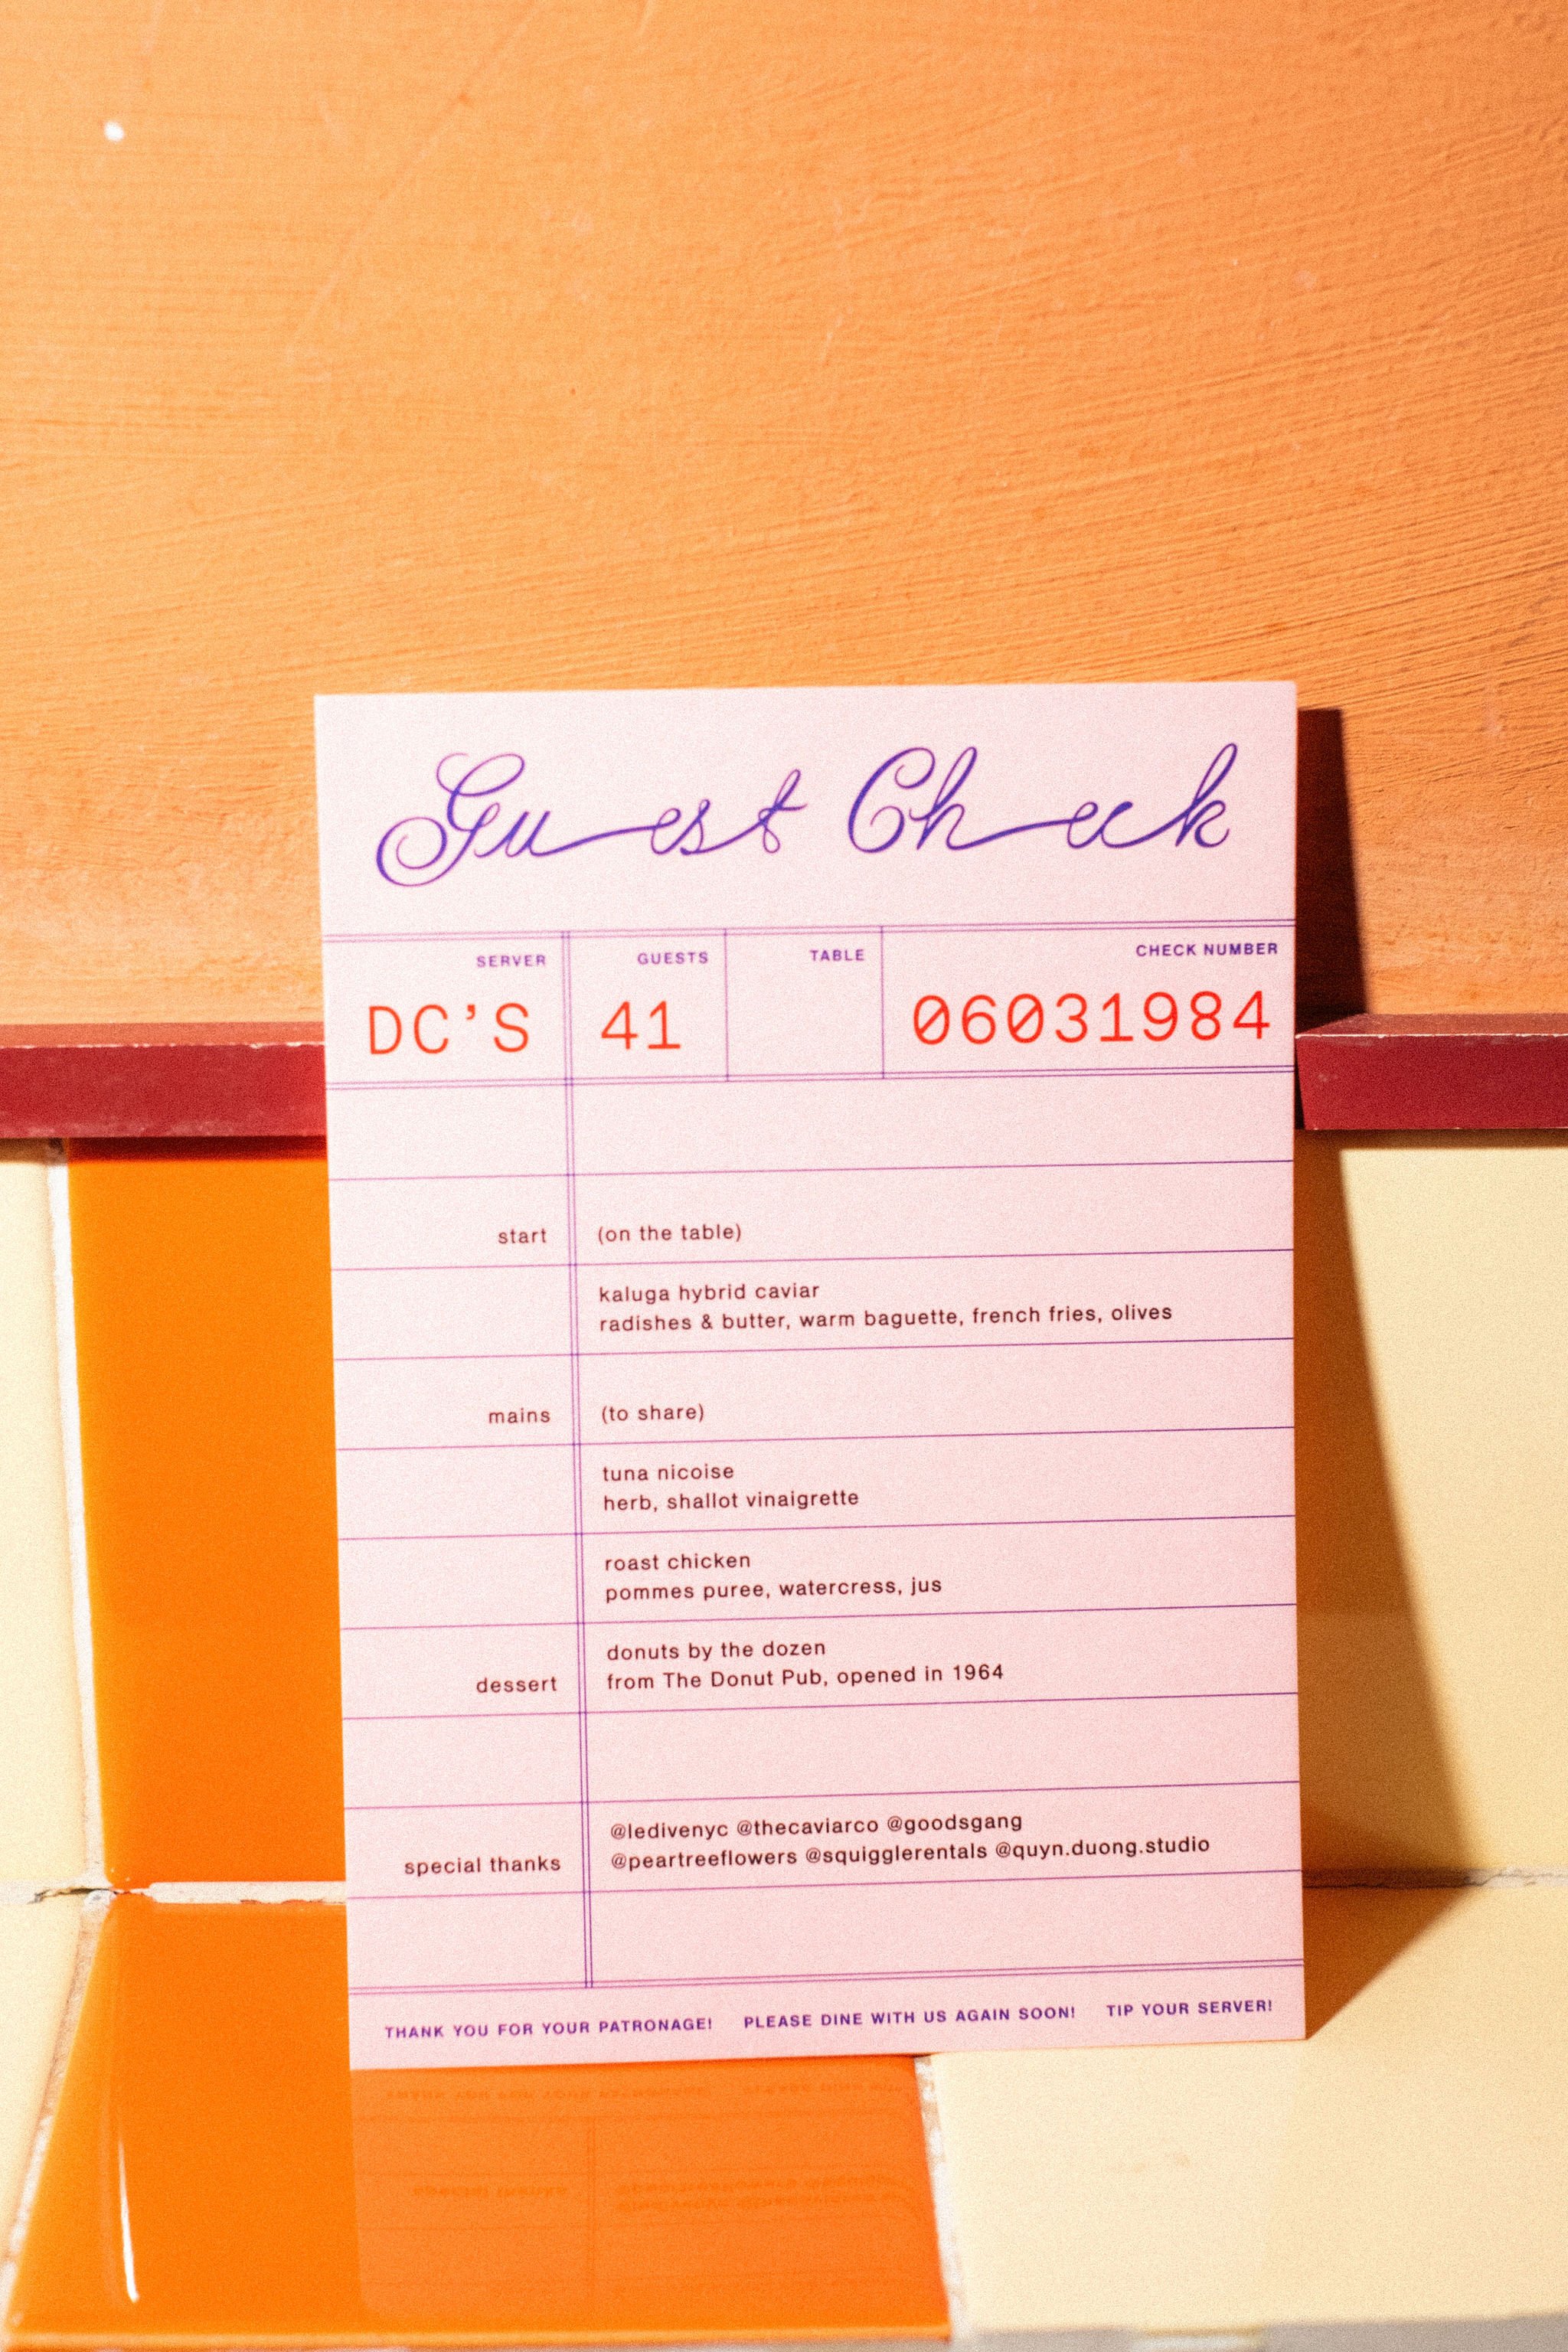 Guest Check
SERVER GUESTS TABLE CHECK NUMBER
DC'S 41 06031984
start (on the table)
kaluga hybrid caviar
radishes & butter, warm baguette, french fries, olives
mains (to share)
tuna nicoise
herb, shallot vinaigrette
roast chicken
pommes puree, watercress, jus
donuts by the dozen
dessert from The Donut Pub, opened in 1964
@ledivenyc @thecaviarco @goodsgang
special thanks @peartreeflowers @squigglerentals @quyn.duong.studio
THANK YOU FOR YOUR PATRONAGE! PLEASE DINE WITH US AGAIN SOON! TIP YOUR SERVER!